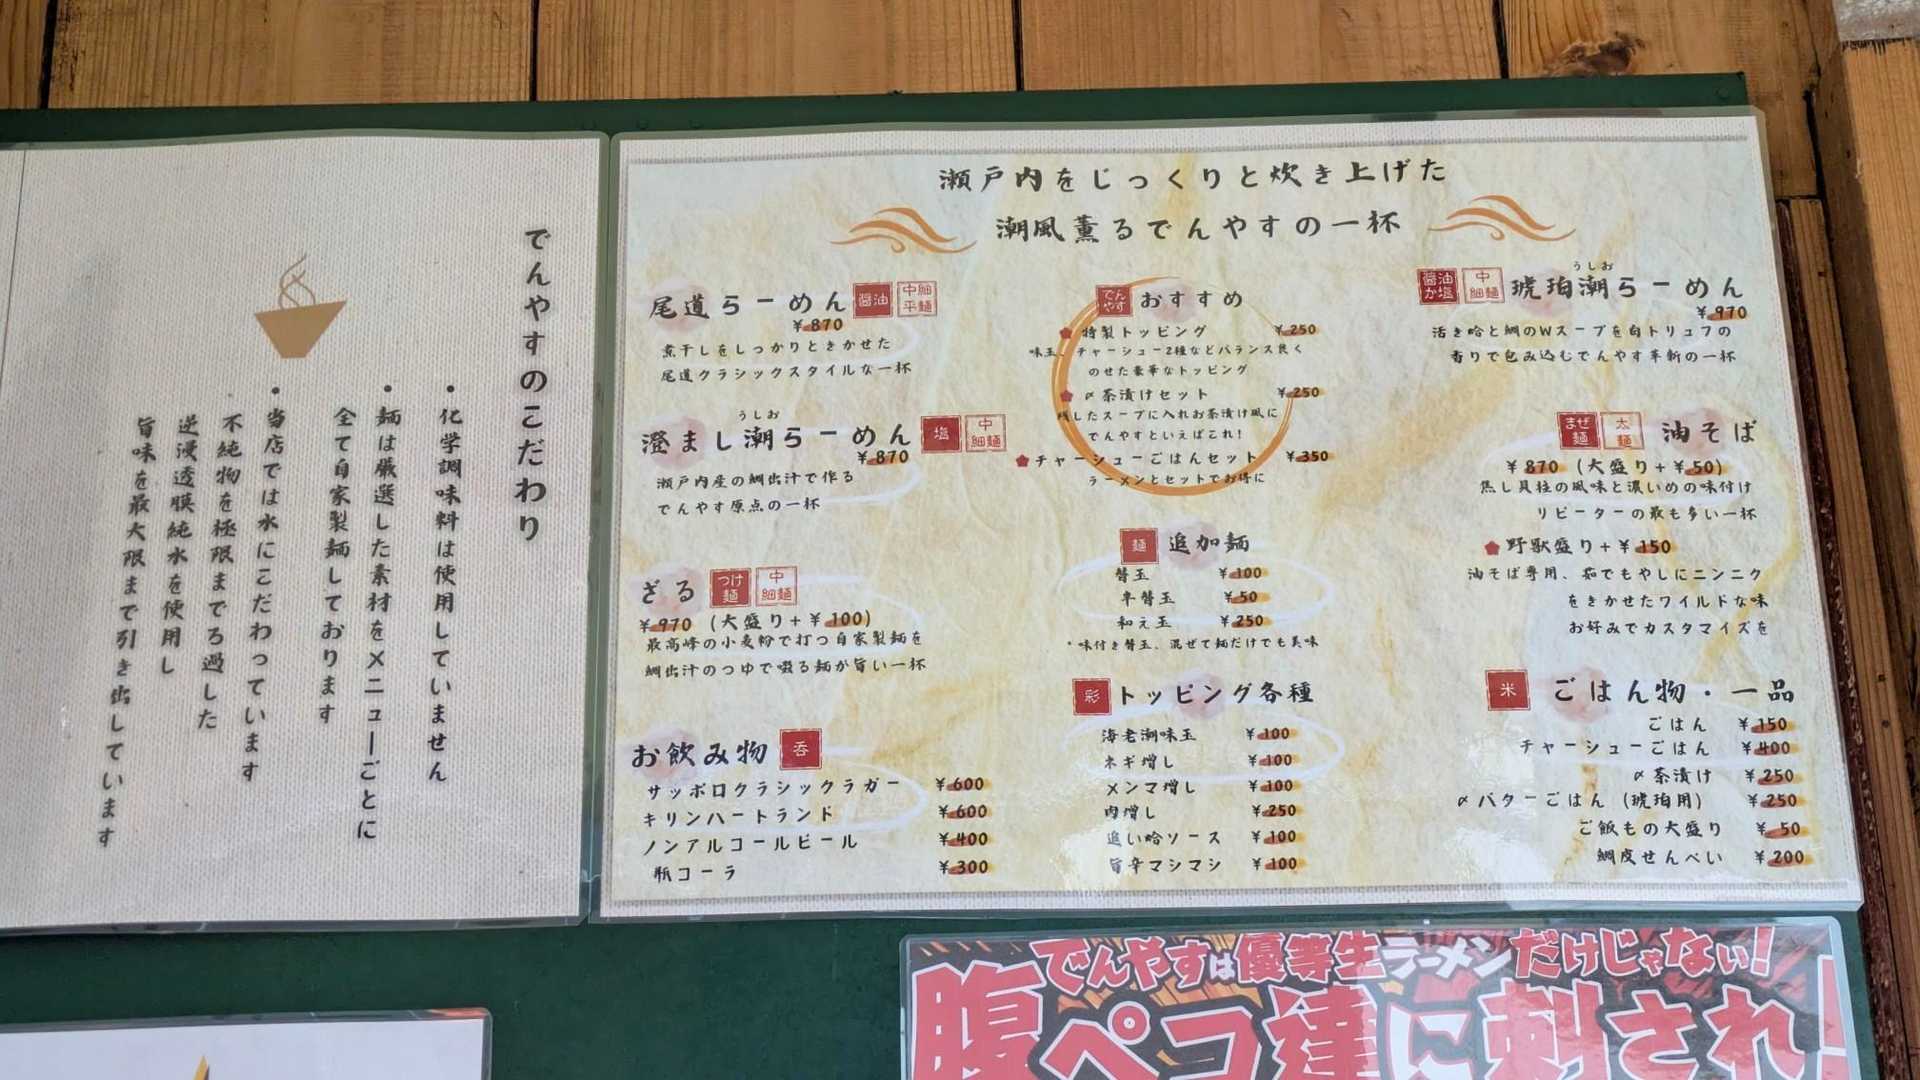 でんやすのこだわり
・化学調味料は使用していません
・麺は厳選した素材をメニューごとに
全て自家製麺しております
・当店では水にこだわっています
不純物を極限までろ過した
逆浸透膜純水を使用し
旨味を最大限まで引き出しています
瀬戸内をじっくりと炊き上げた
潮風薫るでんやすの一杯
尾道らーめん 醤油 中細平麺
¥870
煮干しをしっかりときかせた
尾道クラシックスタイルな一杯
うしお
澄まし潮らーめん 塩 中細麺
¥870
瀬戸内産の鯛出汁で作る
でんやす原点の一杯
ざる つけ麺 中細麺
¥970 (大盛り+¥100)
最高峰の小麦粉で打つ自家製麺を
鯛出汁のつゆで啜る麺が旨い一杯
お飲み物 呑
サッポロクラシックラガー ¥600
キリンハートランド ¥600
ノンアルコールビール ¥400
瓶コーラ ¥300
でんやす おすすめ
特製トッピング ¥250
味玉、チャーシュー2種などバランス良く
のせた豪華なトッピング
〆茶漬けセット ¥250
残したスープに入れお茶漬け風に
でんやすといえばこれ!
チャーシューごはんセット ¥350
ラーメンとセットでお得に
麺 追加麺
替玉 ¥100
半替玉 ¥50
和え玉 ¥250
*味付き替玉、混ぜて麺だけでも美味
彩 トッピング各種
海老潮味玉 ¥100
ネギ増し ¥100
メンマ増し ¥100
肉増し ¥250
追い蛤ソース ¥100
旨辛マシマシ ¥100
うしお
醤油か塩 中細麺 琥珀潮らーめん
¥970
活き蛤と鯛のWスープを白トリュフの
香りで包み込むでんやす革新の一杯
まぜ麺 太麺 油そば
¥870 (大盛り+¥50)
焦し貝柱の風味と濃いめの味付け
リピーターの最も多い一杯
野獣盛り+¥150
油そば専用、茹でもやしにニンニク
をきかせたワイルドな味
お好みでカスタマイズを
米 ごはん物・一品
ごはん ¥150
チャーシューごはん ¥400
〆茶漬け ¥250
〆バターごはん (琥珀用) ¥250
ご飯もの大盛り ¥50
鯛皮せんべい ¥200
でんやすは優等生ラーメンだけじゃない!
腹ペコ達に刺され!